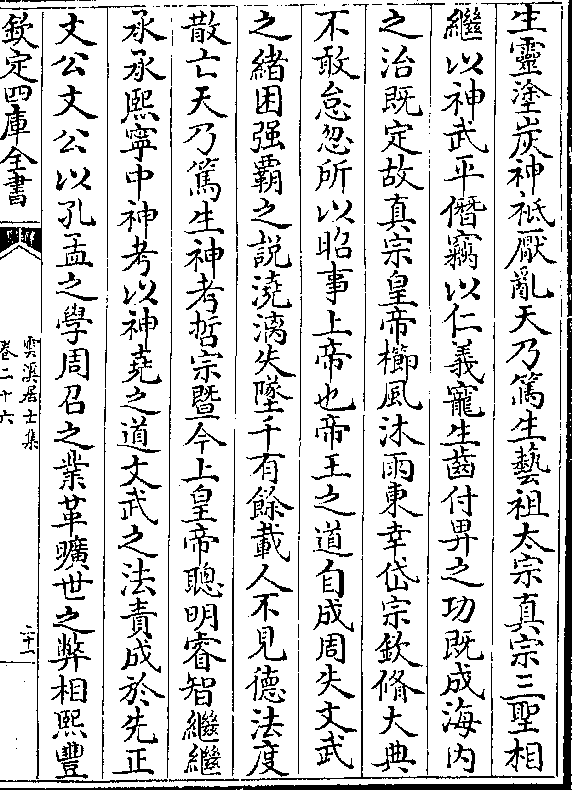 生靈塗炭神祇厭亂天乃篤生藝祖太宗真宗三聖相
繼以神武平僭竊以仁義寵生齒付畀之功既成海内
之治既定故真宗皇帝櫛風沐雨東幸岱宗欽脩大典
不敢怠忽所以昭事上帝也帝王之道自成周失文武
之緒困强霸之説澆漓失墜千有餘載人不見德法度
散亡天乃篤生神考哲宗暨今上皇帝聰明睿智繼繼
承承熙寧中神考以神堯之道文武之法責成於先正
文公文公以孔孟之學周召之業革曠世之弊相熙豐
欽定四庫全書
雲溪居士集
卷二十六
二十一